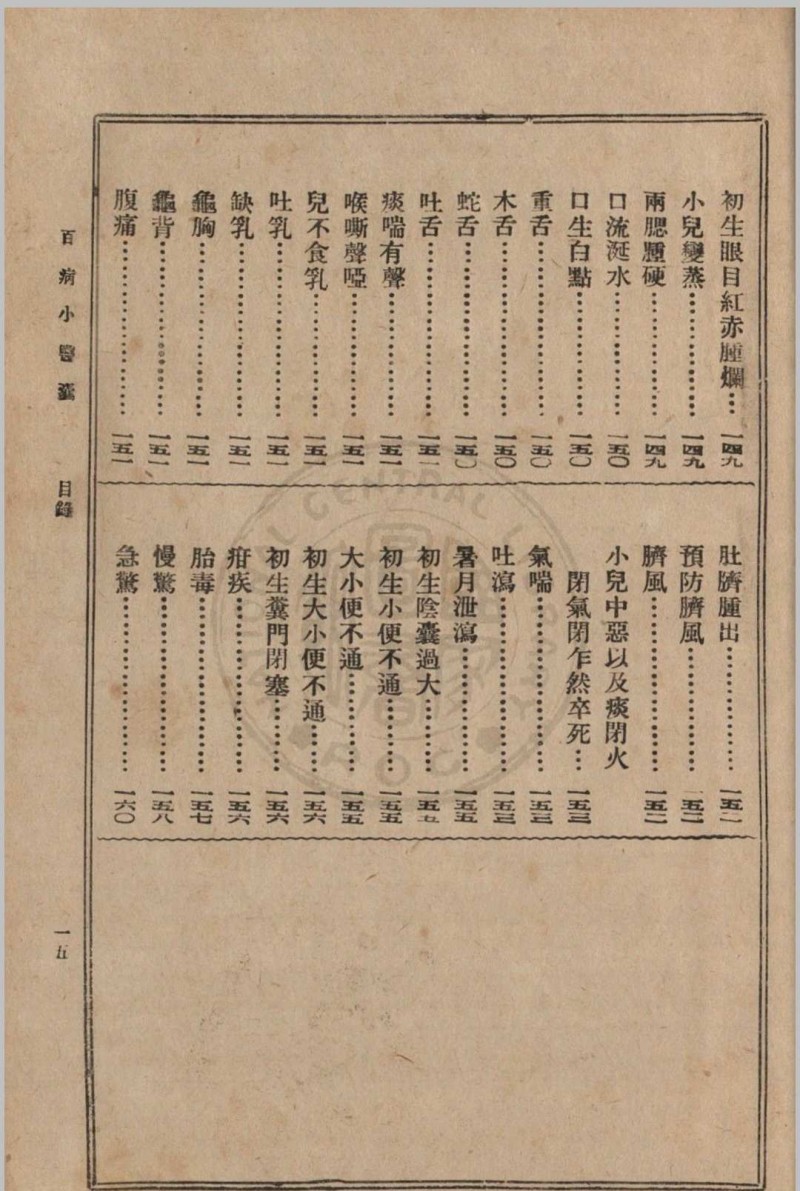 初生眼目紅赤腫爛…一四九
小兒變蒸……一四九
兩腮腫硬……一四九
口流涎水……一五〇
口生白點……一五〇
重舌……一五〇
木舌……一五〇
蛇舌……一五〇
吐舌……一五一
痰喘有聲……一五一
喉嘶聲啞……一五一
兒不食乳……一五一
吐乳……一五一
缺乳……一五一
龜胸……一五一
龜背……一五一
腹痛……一五一
肚臍腫出……一五二
預防臍風……一五二
臍風……一五二
小兒中惡以及痰閉火
閉氣閉乍然卒死…一五三
氣喘……一五三
吐瀉……一五三
暑月泄瀉……一五五
初生陰囊過大……一五五
初生小便不通……一五五
大小便不通……一五五
初生大小便不通……一五六
初生糞門閉塞……一五六
疳疾……一五六
胎毒……一五七
慢驚……一五八
急驚……一六〇
百病小醫囊 目錄
一五
CENTRAL